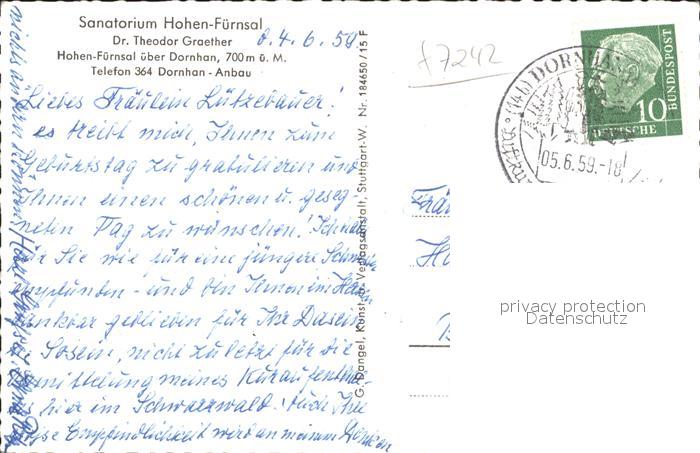 Sanatorium Hohen-Fürnsal
Dr. Theodor Graether
d. 4. 6. 59
Hohen-Fürnsal über Dornhan, 700 m ü. M.
Telefon 364 Dornhan - Anbau
Liebes Fräulein Lützebauer!
es treibt mich, Ihnen zum
Geburtstag zu gratulieren und
Ihnen einen schönen u. geseg-
neten Tag zu wünschen!
für Sie wie für eine jüngere
empfunden - und bin Ihnen im
dankbar geblieben für Ihr Dasein
Sosein, nicht zuletzt für die
Ermittelung meines Kuraufenthal-
hier im Schwarzwald. Auch Ihre
Empfindlichkeit wird an meinem
nichts ändern können!
G. Dangel, Kunst- u. Verlagsanstalt, Stuttgart-W. Nr. 184650 / 15 F
f7242
(14b) DORNHAN
05.6.59.-18
10
DEUTSCHE
BUNDESPOST
privacy protection
Datenschutz